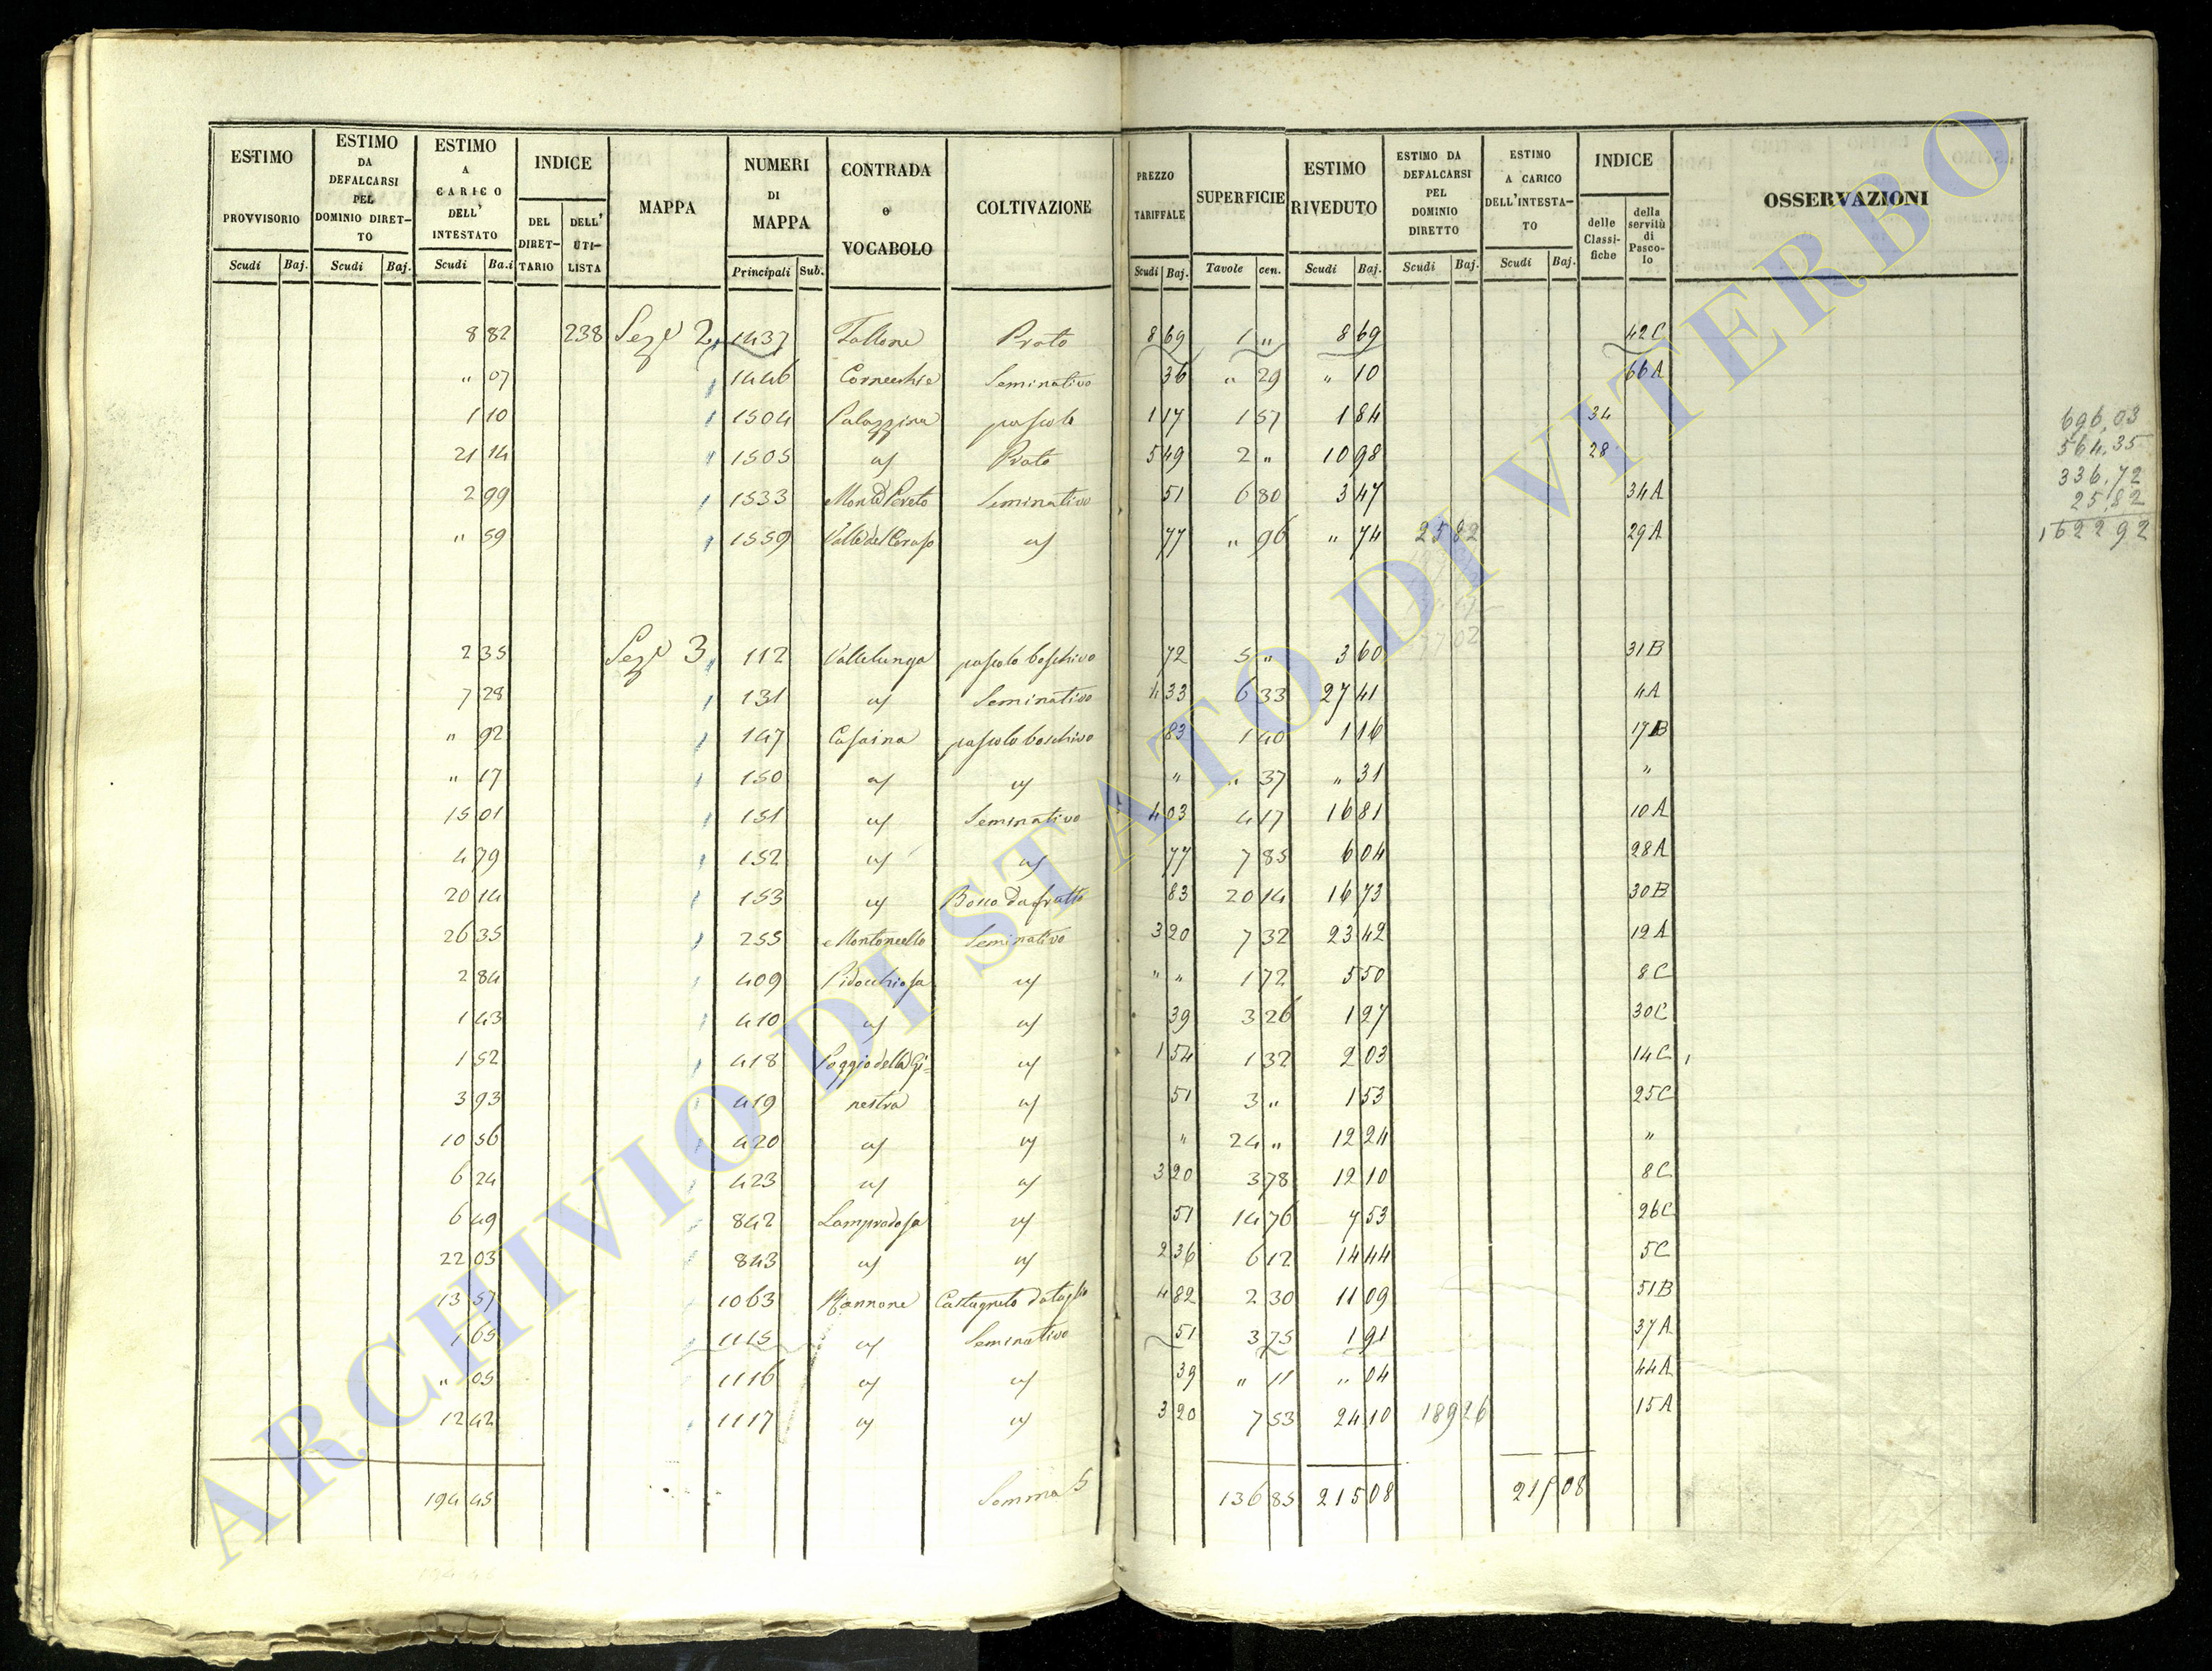 ESTIMO PROVVISORIO Scudi Baj.
ESTIMO DA DEFALCARSI PEL DOMINIO DIRET-TO Scudi Baj.
ESTIMO A CARICO DELL' INTESTATO Scudi Ba.i
INDICE DEL DIRET-TARIO DELL' UTI-LISTA
MAPPA
NUMERI DI MAPPA Principali Sub.
CONTRADA o VOCABOLO
COLTIVAZIONE
PREZZO TARIFFALE Scudi Baj.
SUPERFICIE Tavole cen.
ESTIMO RIVEDUTO Scudi Baj.
ESTIMO DA DEFALCARSI PEL DOMINIO DIRETTO Scudi Baj.
ESTIMO A CARICO DELL'INTESTA-TO Scudi Baj.
INDICE delle Classi-fiche della servitù di Pasco-lo
OSSERVAZIONI
8 82 238 Sez.e 2 1437 Fallone Prato 8 69 1 " 8 69 42C
" 07 1446 Cornecchie Seminativo 36 " 29 " 10 66A
1 10 1504 Palazzina pascolo 1 17 1 57 1 84 34
21 14 1505 Prato 5 49 2 " 10 98 28
2 99 1533 Seminativo 51 6 80 3 47 34A
" 59 1559 77 " 96 " 74 25 82 29A
2 35 Sez.e 3 112 Vallelunga pascolo boschivo 72 5 " 3 60 31B
7 28 131 Seminativo 4 33 6 33 27 41 4A
" 92 147 Casaina pascolo boschivo 83 1 40 1 16 17B
" 17 150 " " 37 " 31 "
15 01 151 Seminativo 4 03 4 17 16 81 10A
4 79 152 77 7 85 6 04 28A
20 14 153 Bosco da frutto 83 20 14 16 73 30B
26 35 255 Montoncello Seminativo 3 20 7 32 23 42 12A
2 84 409 Pidocchiosa " " 1 72 5 50 8C
1 43 410 39 3 26 1 27 30C
1 52 418 Poggio della Gi= 1 54 1 32 2 03 14C
3 93 419 nestra 51 3 " 1 53 25C
10 56 420 " 24 " 12 24 "
6 24 423 3 20 3 78 12 10 8C
6 49 842 Lampradosa 51 14 76 7 53 26C
22 03 843 2 36 6 12 14 44 5C
13 57 1063 Mannone Castagneto da taglio 4 82 2 30 11 09 51B
1 65 1115 Seminativo 51 3 75 1 91 37A
" 05 1116 39 " 11 " 04 44A
12 42 1117 3 20 7 53 24 10 189 26 15A
194 45 Somma S 136 85 215 08 215 08
696,03
564,35
336,72
25,82
1622 92
ARCHIVIO DI STATO DI VITERBO